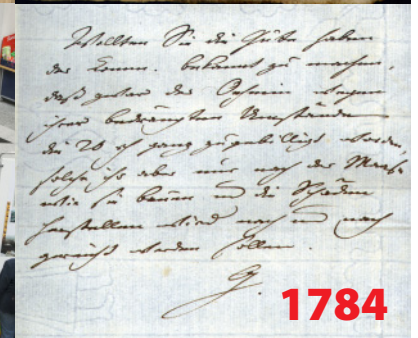 Wollten Sie die Güte haben
der Comm. bekannt zu machen,
daß zwar der wegen
ihrer bedrängten Umstände
die 20 rh ganz zugebilligt worden,
solche ihr aber nur nach der Maase
wie sie bauen und die Schäden
herstellen wird nach und nach
gereicht werden sollen.
G.
1784